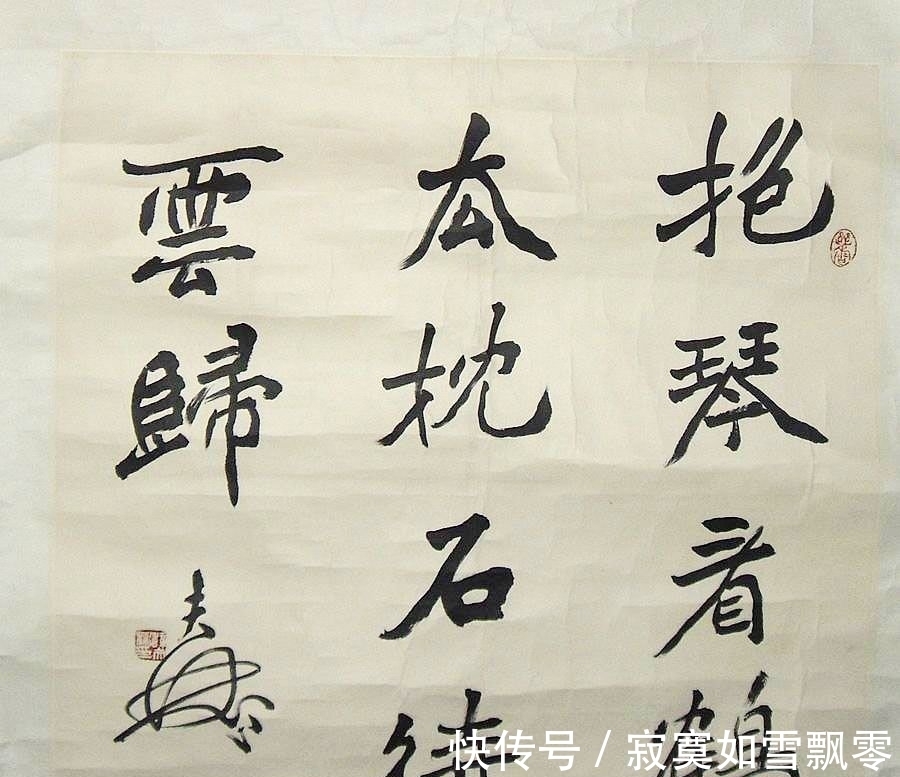 抱琴看鹤
去枕石待
雲歸
快传号 / 寂寞如雪飘零